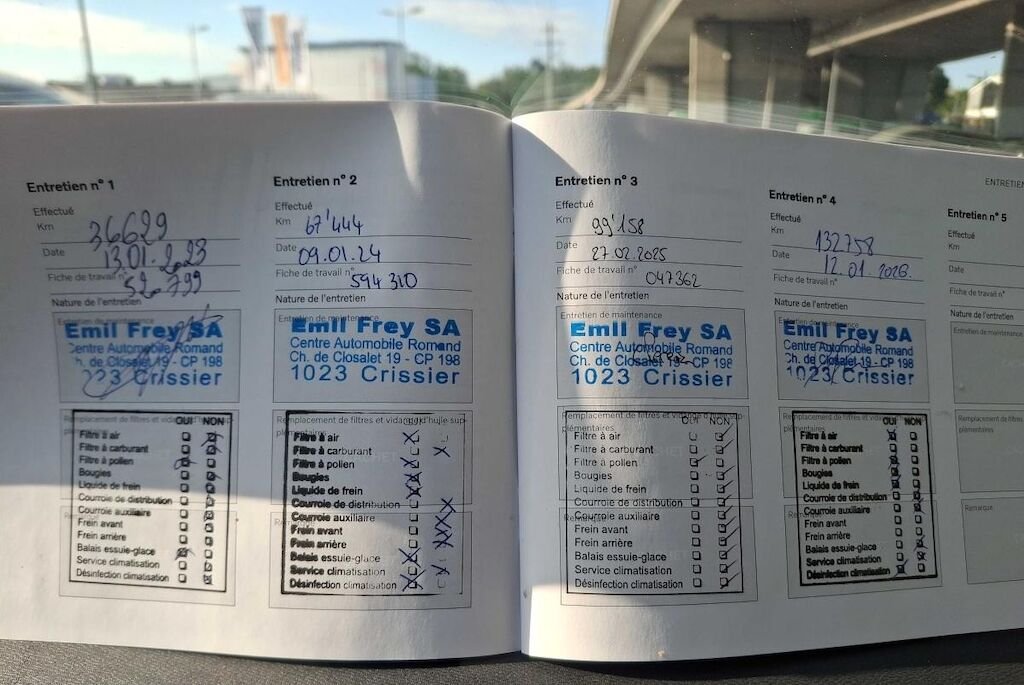 Entretien n° 1
Effectué
Km 36629
Date 13.01.2023
Fiche de travail n° 520799
Nature de l'entretien
Entretien de maintenance
Emil Frey SA
Centre Automobile Romand
Ch. de Closalet 19 - CP 198
1023 Crissier
Remplacement de filtres et vidange d'huile sup-
plémentaires
OUI NON
Filtre à air
Filtre à carburant
Filtre à pollen
Bougies
Liquide de frein
Courroie de distribution
Courroie auxiliaire
Frein avant
Frein arrière
Balais essuie-glace
Service climatisation
Désinfection climatisation
Entretien n° 2
Effectué
Km 67'444
Date 09.01.24
Fiche de travail n° 594310
Nature de l'entretien
Entretien de maintenance
Emil Frey SA
Centre Automobile Romand
Ch. de Closalet 19 - CP 198
1023 Crissier
Remplacement de filtres et vidange d'huile sup-
plémentaires
Filtre à air
Filtre à carburant
Filtre à pollen
Bougies
Liquide de frein
Courroie de distribution
Courroie auxiliaire
Frein avant
Frein arrière
Balais essuie-glace
Service climatisation
Désinfection climatisation
Entretien n° 3
Effectué
Km 99'158
Date 27.02.2025
Fiche de travail n° 047362
Nature de l'entretien
Entretien de maintenance
Emil Frey SA
Centre Automobile Romand
Ch. de Closalet 19 - CP 198
1023 Crissier
Remplacement de filtres et vidange d'huile sup-
plémentaires
OUI NON
Filtre à air
Filtre à carburant
Filtre à pollen
Bougies
Liquide de frein
Courroie de distribution
Courroie auxiliaire
Frein avant
Frein arrière
Balais essuie-glace
Service climatisation
Désinfection climatisation
Remarque
Entretien n° 4
Effectué
Km 132758
Date 12.01.2026.
Fiche de travail n°
Nature de l'entretien
Entretien de maintenance
Emil Frey SA
Centre Automobile Romand
Ch. de Closalet 19 - CP 198
1023 Crissier
Remplacement de filtres et vidange d'huile sup-
plémentaires
OUI NON
Filtre à air
Filtre à carburant
Filtre à pollen
Bougies
Liquide de frein
Courroie de distribution
Courroie auxiliaire
Frein avant
Frein arrière
Balais essuie-glace
Service climatisation
Désinfection climatisation
ENTRETIEN
Entretien n° 5
Effectué
Km
Date
Fiche de travail n°
Nature de l'entretien
Entretien de maintenance
Remplacement de filtres
plémentaires
Remarque